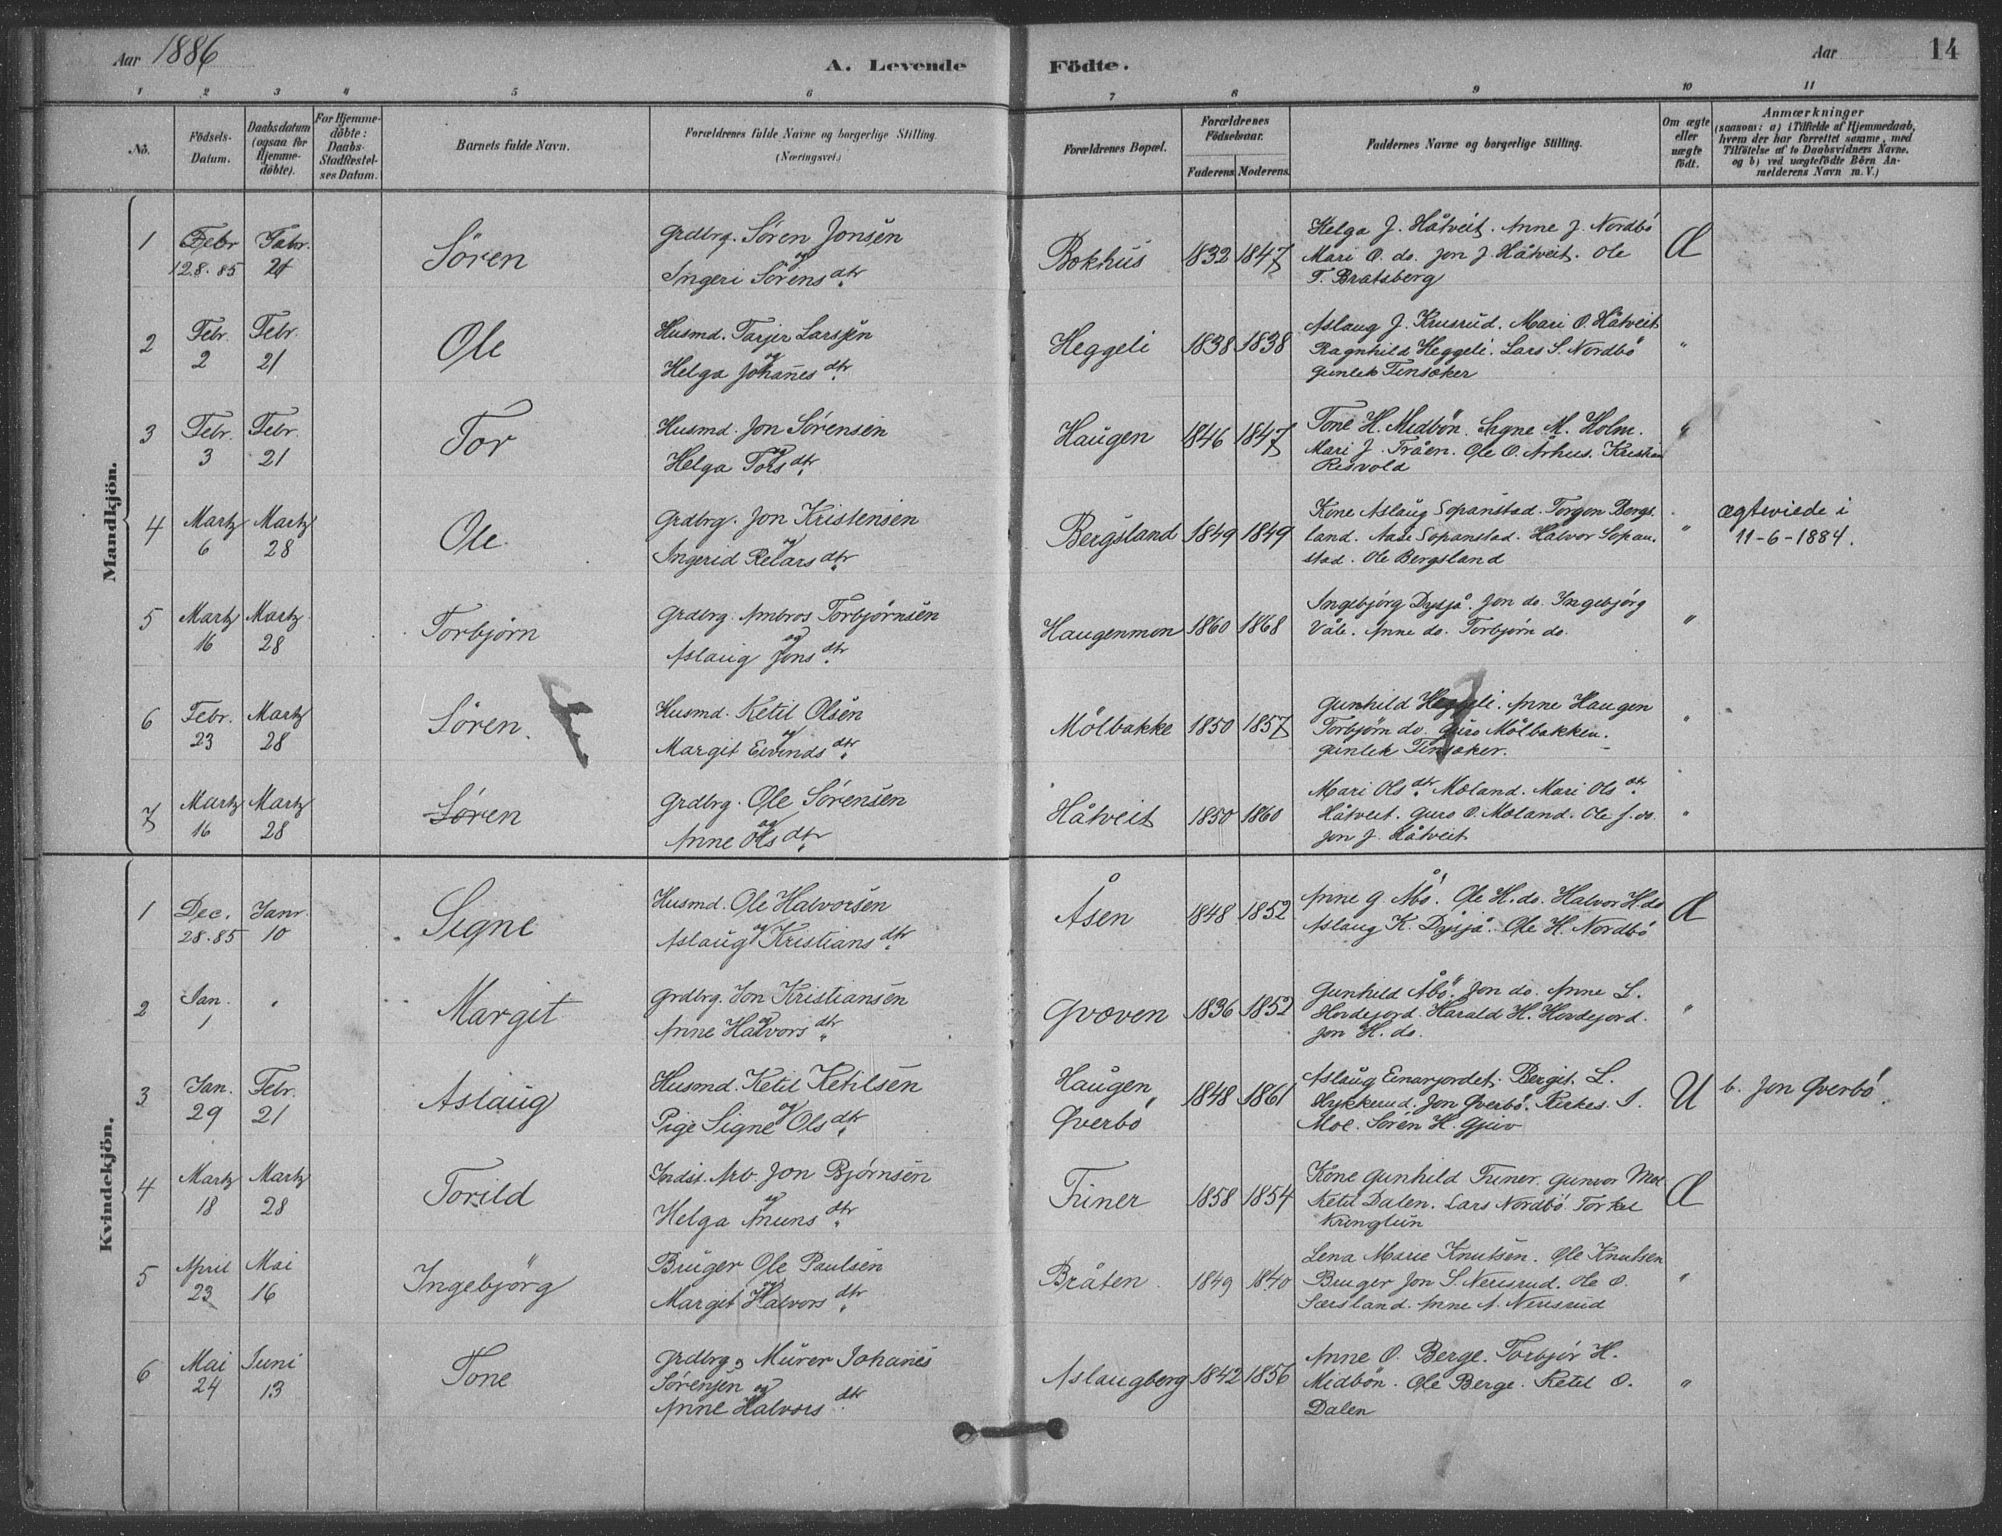 Aar 1886
A. Levende Födte.
Aar
14
1 2 3 4 5 6 7 8 9 10 11
No.
Födsels-Datum.
Daabsdatum (ogsaa for Hjemme-döbte).
For Hjemme-döbte: Daabs-Stadfæstel-ses Datum.
Barnets fulde Navn.
Forældrenes fulde Navne og borgerlige Stilling. (Næringsvei.)
Forældrenes Bopæl.
Forældrenes Födselsaar.
Faderens. Moderens.
Faddernes Navne og borgerlige Stilling.
Om ægte eller uægte födt.
Anmærkninger
(saasom: a) i Tilfælde af Hjemmedaab,
hvem der har forrettet samme, med
Tilföielse af to Daabsvidners Navne,
og b) ved uægtefödte Börn An-
melderens Navn m. V.)
Mandkjön.
1 Febr 12.8.85 Fabr. 21 Søren
Grdbrg. Søren Jonsen
og
Ingeri Sørensdtr.
Bøkhus 1832 1847
Helga J. Håtveit. Anne J. Nordbö
Mari O. do. Jon J. Håtveit. Ole
T. Bratsberg
Æ
2 Febr. 2 Febr. 21 Ole
Husmd. Tarjer Larssen
og
Helga Johanesdtr.
Heggeli 1838 1838
Aslaug J. Krusrud. Mari O. Håtveit
Ragnhild Heggeli. Lars S. Nordbö
Gunlek Tinsaker
"
3 Febr. 3 Febr. 21 Tor
Husmd. Jon Sørensen
og
Helga Torsdtr.
Haugen 1846 1847
Tone H. Midbön. Signe M. Holm.
Mari J. Tråen. Ole O. Århus. Kristian
Risvold
"
4 Martz 6 Martz 28 Ole.
Grdbrg. Jon Kristensen
og
Ingerid Relarsdtr.
Bergsland 1849 1849
Kone Aslaug Sopanstad. Torgon Bergs.
land. Aase Sopanstad. Halvor Sopan.
stad. Ole Bergsland
"
ægteviede i
11-6-1884.
5 Martz 16 Martz 28 Torbjørn
Grdbrg. Ambros Torbjørnsen
og
Aslaug Jonsdtr.
Haugenmon 1860 1868
Ingebjörg Dysjå. Jon do. Ingebjörg
Våle. Anne do. Torbjørn do.
"
6 Febr. 23 Martz 28 Søren.
Husmd. Ketil Olsen
og
Margit Eivindsdtr.
Mølbakke 1850 1857
Gunhild Heggeli. Anne Haugen
Torbjørn do. Guro Mølbakken.
Gunlek Tinsaker.
"
7 Martz 16 Martz 28 Søren
Grdbrg. Ole Sørensen
og
Anne Olsdtr.
Håtveit 1850 1860
Mari Olsdtr. Moland. Mari Olsdtr.
Håtveit. Guro O. Moland. Ole J. do.
Jon J. Håtveit
"
Kvindekjön.
1 Dec. 28.85 Janr. 10 Signe
Husmd. Ole Halvorsen
og
Aslaug Kristiansdtr.
Åsen 1848 1852
Anne G. Åbö. Ole H. do. Halvor H. do
Aslaug K. Dysjå. Ole H. Nordbö
Æ
2 Jan. 1 " Margit
Grdbrg. Jon Kristiansen
og
Anne Halvorsdtr.
Gvæven 1836 1852
Gunhild Åbö. Jon do. Anne L.
Hovdejord. Harald H. Hovdejord.
Jon H. do.
"
3 Jan. 29 Febr. 21 Aslaug
Husmd. Ketil Ketilsen
og
Pige Signe Olsdtr.
Haugen, Øverbö 1848 1861
Aslaug Einarjordet. Bergit L.
Hykkerud. Jon Øverbö. Kirkes. S.
Moe. Søren H. Gjuv
U
b. Jon Øverbö.
4 Martz 18 Martz 28 Torild
Indst. Arb. Jon Bjørnsen
og
Helga Amunsdtr.
Triner 1858 1854
Kone Gunhild Triner. Gunvor Moe
Ketil Dalen. Lars Nordbö. Torkel
Kringlun
Æ
5 April 23 Mai 16 Ingebjörg
Bruger Ole Paulsen
og
Margit Halvorsdtr.
Bråten. 1849 1840
Lena Marie Knutsen. Ole Knutsen
Bruger Jon S. Nerisrud. Ole O.
Særsland. Anne A. Nerisrud
"
6 Mai 24 Juni 13 Tone
Grdbrg. Murer Johanes
Sørensen og
Anne Halvorsdtr.
Aslaugberg 1842 1856
Anne O. Berge. Torbjör H.
Midbön. Ole Berge. Ketil O.
Dalen
"